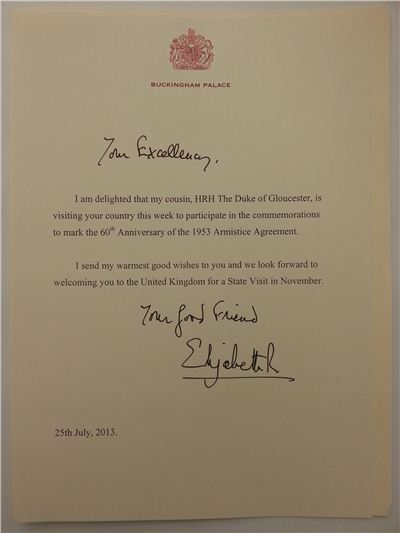 BUCKINGHAM PALACE
Your Excellency,
I am delighted that my cousin, HRH The Duke of Gloucester, is
visiting your country this week to participate in the commemorations
to mark the 60th Anniversary of the 1953 Armistice Agreement.
I send my warmest good wishes to you and we look forward to
welcoming you to the United Kingdom for a State Visit in November.
Your Good Friend
Elizabeth R
25th July, 2013.